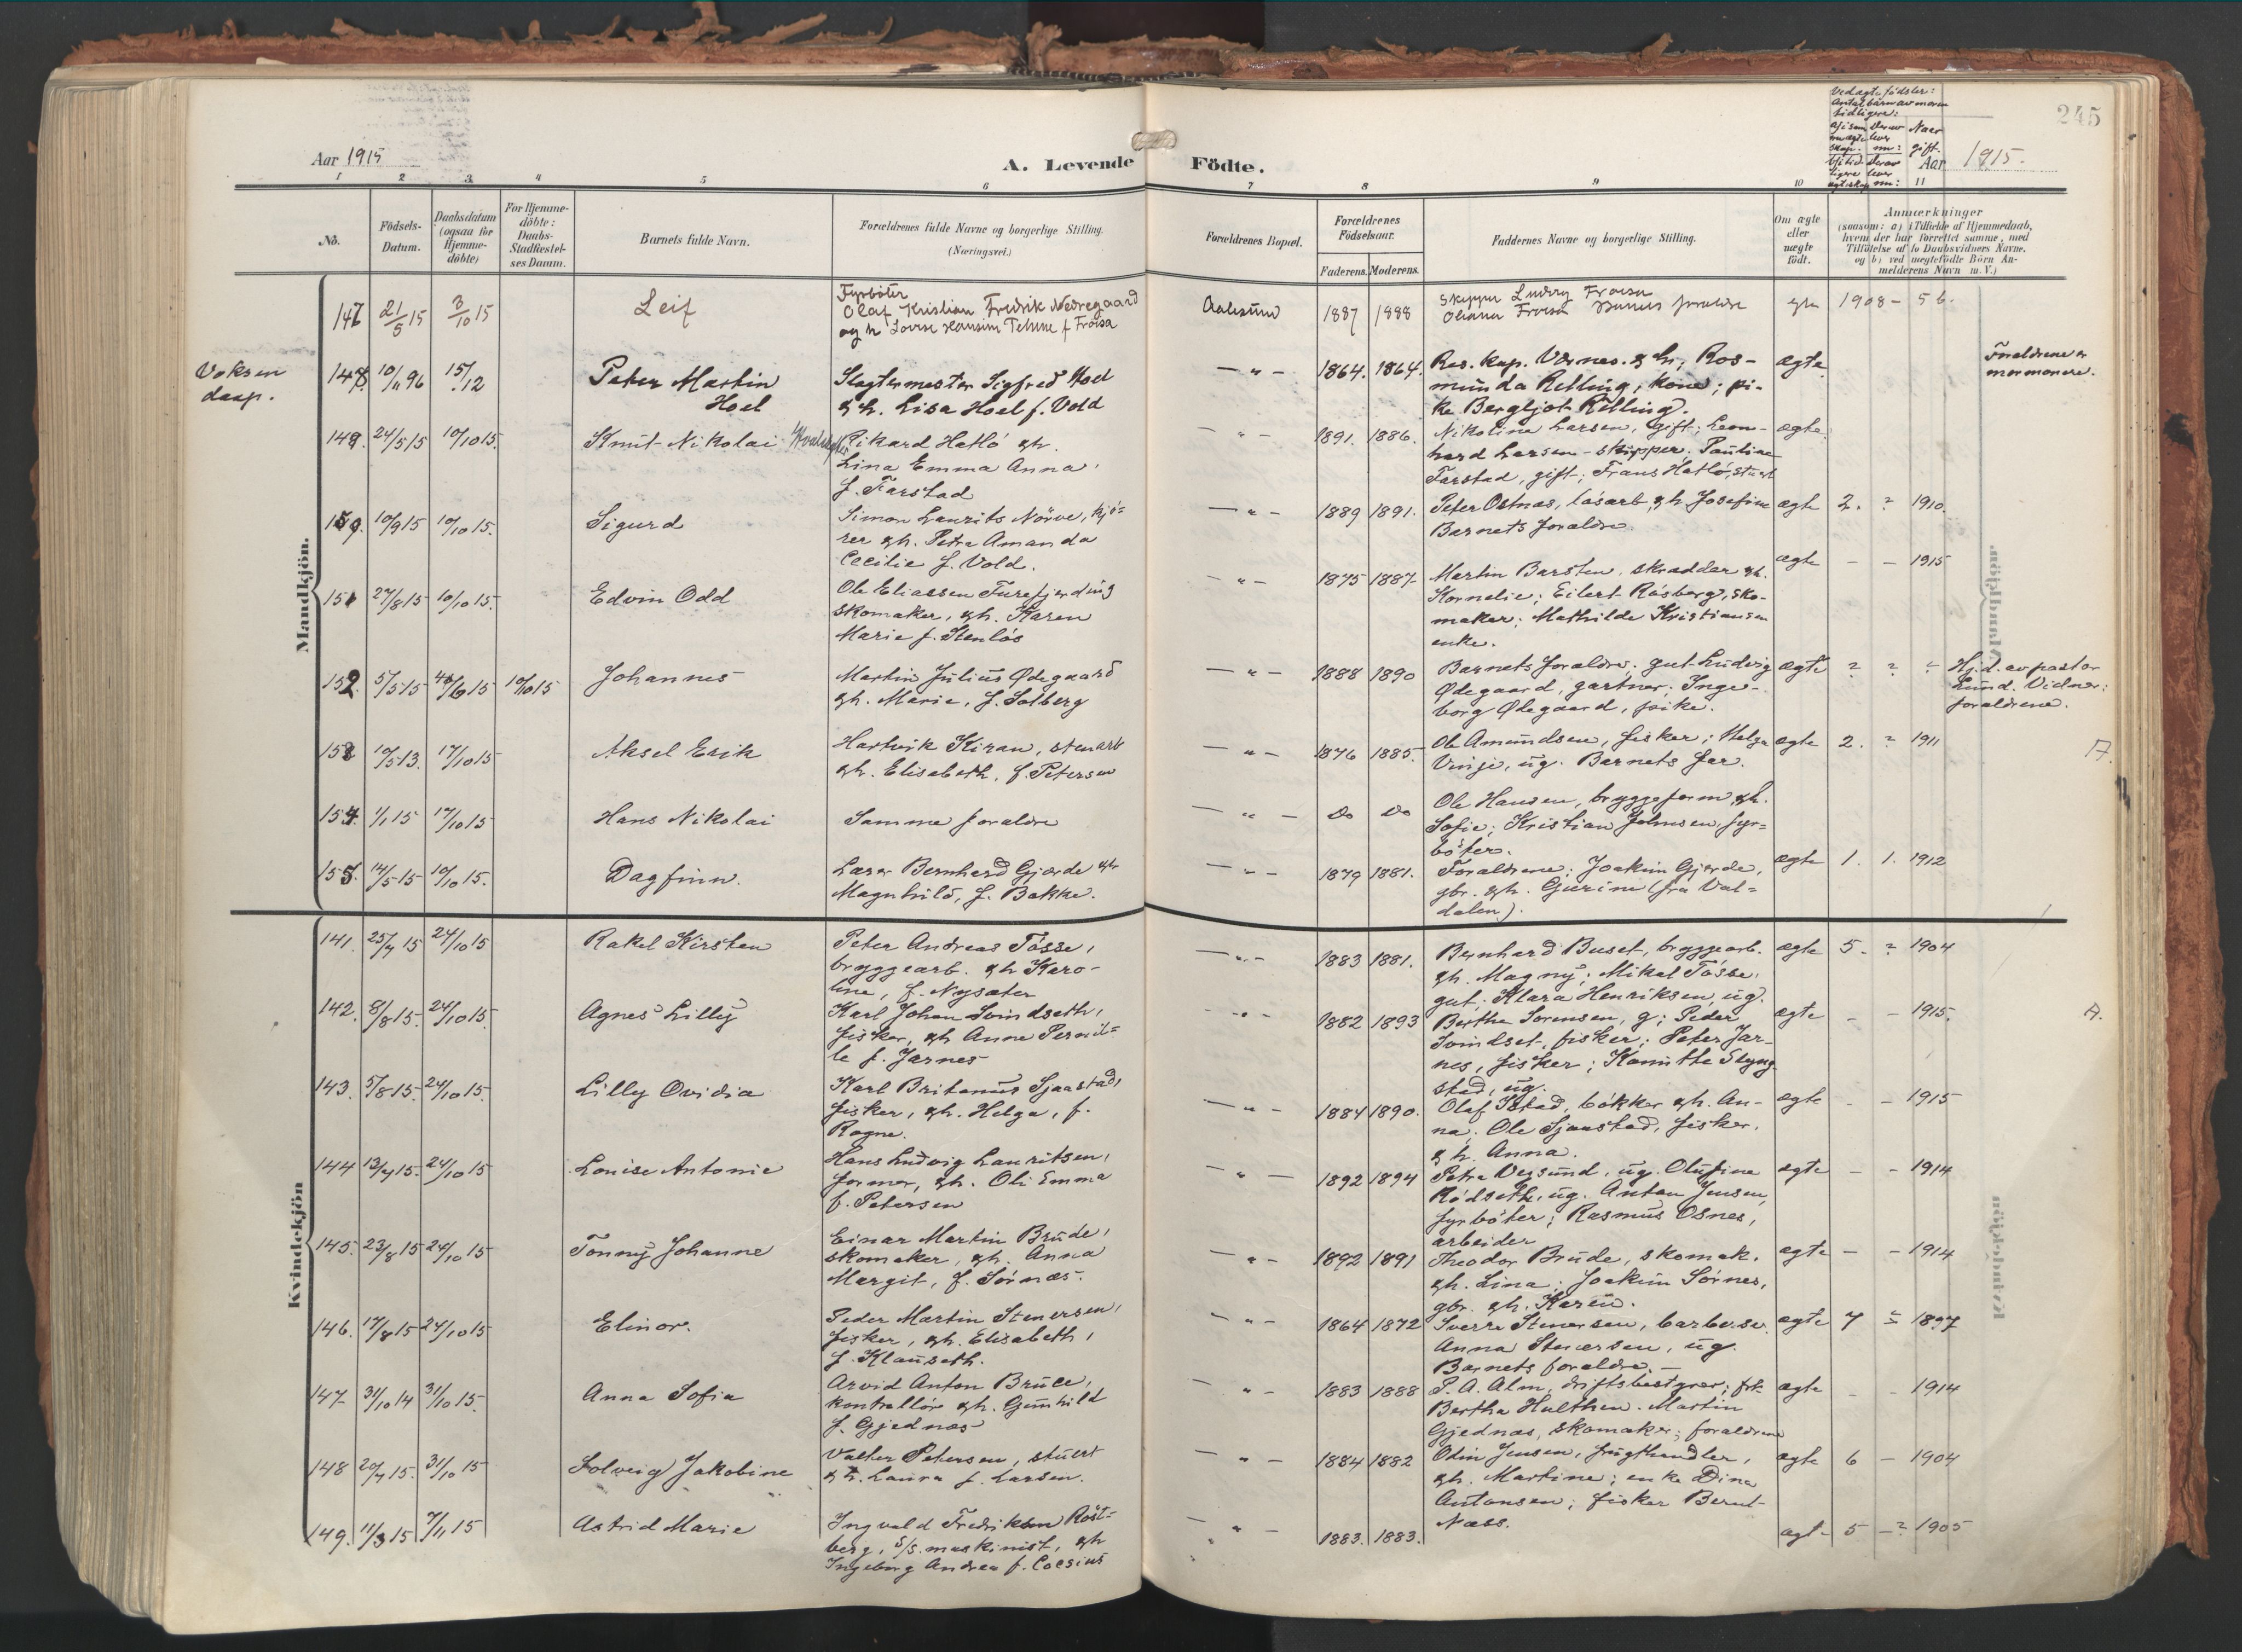 245
Vedægte fødsler:
Antal børn av moren
tidligere:
Naar
gift.
Aar 1915
A. Levende Födte.
Aar 1915.
1 2 3 4 5 6 7 8 9 10 11
No.
Födsels-
Datum.
Daabsdatum
(ogsaa for
Hjemme-
döbte)
For Hjemme-
döbte:
Daabs-
Stadfæstel-
ses Datum.
Barnets fulde Navn.
Forældrenes fulde Navne og borgerlige Stilling.
(Næringsvei.)
Forældrenes Bopæl.
Forældrenes
Födselsaar.
Faderens. Moderens.
Faddernes Navne og borgerlige Stilling.
Om ægte
eller
uægte
födt.
Anmærkninger
(saasom: a) i Tilfælde af Hjemmedaab,
hvem der har forrettet samme, med
Tilföielse af to Daabsvidners Navne,
og b) ved uægtefödte Börn An-
melderens Navn m. V.)
Mandkjön.
147 21/5 15 3/10 15 Leif
Fyrbøter
Olaf Kristian Fredrik Nedregaard
og h Lovise Hansine
Aalesund 1887 1888
Skipper Ludvig
Oliana
1908 - 5 b.
Voksen
daap.
148 10/11 96 15/12 Peter Martin
Hoel
Slagtermester Sigfred Hoel
& h. Lisa Hoel f. Vold
— " — 1864. 1864.
Res. kap. Værnes. & h., Ros-
munda Relling, kone; pi-
ke Bergljot Relling.
ægte
Foreldrene er
mormonere.
149. 24/5 15 10/10 15. Knut Nikolai
Rikard Hatlö & h.
Lina Emma Anna,
f. Farstad
— " — 1891. 1886.
Nikoline Larsen, gift; Leon-
hard Larsen - skipper; Pauline
Farstad, gift; Frans Hatlö, stuert
ægte
150. 10/9 15 10/10 15. Sigurd
Simon Laurits Nörve, kjö-
rer & h. Petra Amanda
Cecilie f. Vold.
— " — 1889 1891.
Peter Ostnes, løsarb. & h. Josefine
Barnets foraldre
ægte 2. ? 1910.
151 27/8 15 10/10 15. Edvin Odd
Ole Eliassen Furefjerding
skomaker, & h. Karen
Marie f. Stenlös
— " — 1875 1887
Martin Barsten, skrædder & h.
Kornelie; Eilert Råsberg, sko-
maker; Mathilde Kristiansen
enke.
ægte — — 1915
152. 5/5 15 10/10 15 Johannes
Martin Julius Ødegaard
& h. Marie, f. Solberg
— " — 1888 1890
Barnets foraldre; gut Ludvig
Ødegaard, gartner; Inge-
borg Ødegaard, pike.
ægte ? ? ?
Hj.d. av pastor
Lund. Vidner:
foraldrene.
153 10/5 13. 17/10 15 Aksel Erik
Hartvik Kiran, stenarb
& h. Elisabeth, f. Petersen
— " — 1876 1885.
Ole Amundsen, fisker; Helga
Vinje, ug. Barnets far.
ægte 2. ? 1911
A.
154. 1/1 15 17/10 15 Hans Nikolai
Samme foraldre
— " — Do Do
Ole Hansen, bryggeform. & h.
Sofie; Kristian Johnsen, fyr-
böter.
155. 14/5 15 10/10 15. Dagfinn.
Lærer Bernhard Gjærde & h
Magnhild, f. Bakke.
— " — 1879 1881.
Foraldrene; Joakim Gjerde,
gbr. & h. Gurine (fra Val-
dalen).
ægte 1. 1. 1912
Kvindekjön
141. 25/7 15 24/10 15 Rakel Kirsten
Peter Andreas Tösse,
bryggearb. & h Karo-
line, f. Nysæter
— " — 1883 1881.
Bernhard Buset, bryggearb.
& h. Magny; Mikal Tösse,
gut. Klara Henriksen, ug.
ægte 5. ? 1904
142. 8/8 15. 24/10 15. Agnes Lilly
Karl Johan Svindseth,
fisker, & h Anne Pernil-
le f. Jarnes
— " — 1882 1893
Berthe Sørensen, g; Peder
Svindset, fisker; Peter Jar-
nes, fisker;
stad, ug.
ægte — — 1915.
A.
143. 5/8 15. 24/10 15. Lilly Ovidia
Karl Britanus Sjaastad,
fisker, & h. Helga, f.
Rogne.
— " — 1884 1890.
Olaf Istad, bökker & h. An-
na; Ole Sjaastad, fisker,
& h. Anna.
ægte — — 1915
144 13/7 15. 24/10 15 Louise Antonie
Hans Ludvig Lauritsen,
former, & h. Oli Emma
f. Petersen
— " — 1892 1894
Petra Vegsund, ug. Olufine
Rødseth, ug. Anton Jensen,
fyrböter; Rasmus Osnes,
arbeider
ægte — — 1914
145. 23/8 15 24/10 15 Tonny Johanne
Einar Martin Brude,
skomaker, & h. Anna
Margit, f. Sörnæs.
— " — 1892 1891
Theodor Brude, skomak.
& h. Lina; Joakim Sörnes,
gbr. & h. Karen.
ægte — — 1914
146. 17/8 15 24/10 15 Elinor.
Peder Martin Stenersen,
fisker, & h. Elisabeth,
f. Klauseth.
— " — 1864 1872
Sverre Stenersen, barber. sv.
Anna Stenersen, ug.
Barnets foraldre. —
ægte 7 1897
147. 31/10 14 31/10 15. Anna Sofia
Arvid Anton Bruce,
kontrollör & h. Gunhild
f. Gjednæs
— " — 1883 1888
P. A. Alm, driftsbestyrer; frk.
Bertha Hulthen. Martin
Gjednæs, skomaker; foraldrene
ægte — — 1914
148 20/7 15. 31/10 15 Solveig Jakobine
Valter Petersen, stuert
& h. Laura f. Larsen.
— " — 1884 1882
Odin Jensen, frugthandler,
& h. Martine; enke Dina
Antonsen; fisker Bernt
Næss.
ægte 6 — 1904
149. 11/3 15 7/11 15 Astrid Marie
Ingvald Fredriksen Röst-
berg, S/S. maskinist, & h
Ingeborg Andrea f. Coesius
— " — 1883. 1883.
ægte 5 — ? 1905